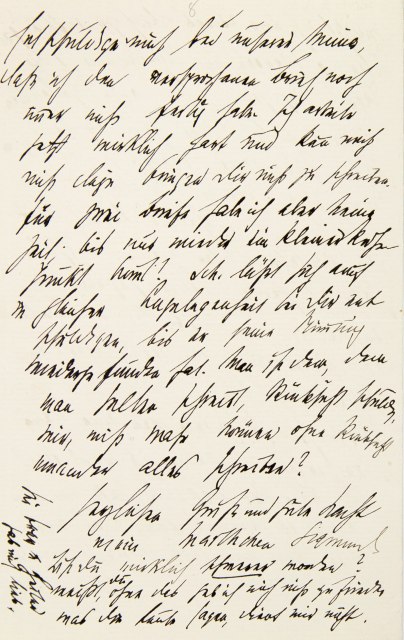 Entschuldige mich bei unserer Minna,
daß ich den versprochenen Brief noch
immer nicht fertig habe. Ich arbeite
jetzt wirklich hart und kann mich
nicht dazu bringen Dir nicht zu schreiben.
Für zwei Briefe habe ich aber keine
Zeit. bis nur wieder ein kleiner Ruhe-
punkt kommt. Sch. läßt sich auch
in gleicher Angelegenheit bei Dir ent
schuldigen, bis er seine Stimmung
wiedergefunden hat. Man ist dem, dem
man selten schreibt, Rücksicht schuldig,
wir, nicht wahr können ohne Rücksicht
einander alles schreiben?
Herzlichen Gruß und gute Nacht
mein Marthchen Sigmund
bist du wirklich schwerer worden?
was den Leute sagen
hab mich lieb.